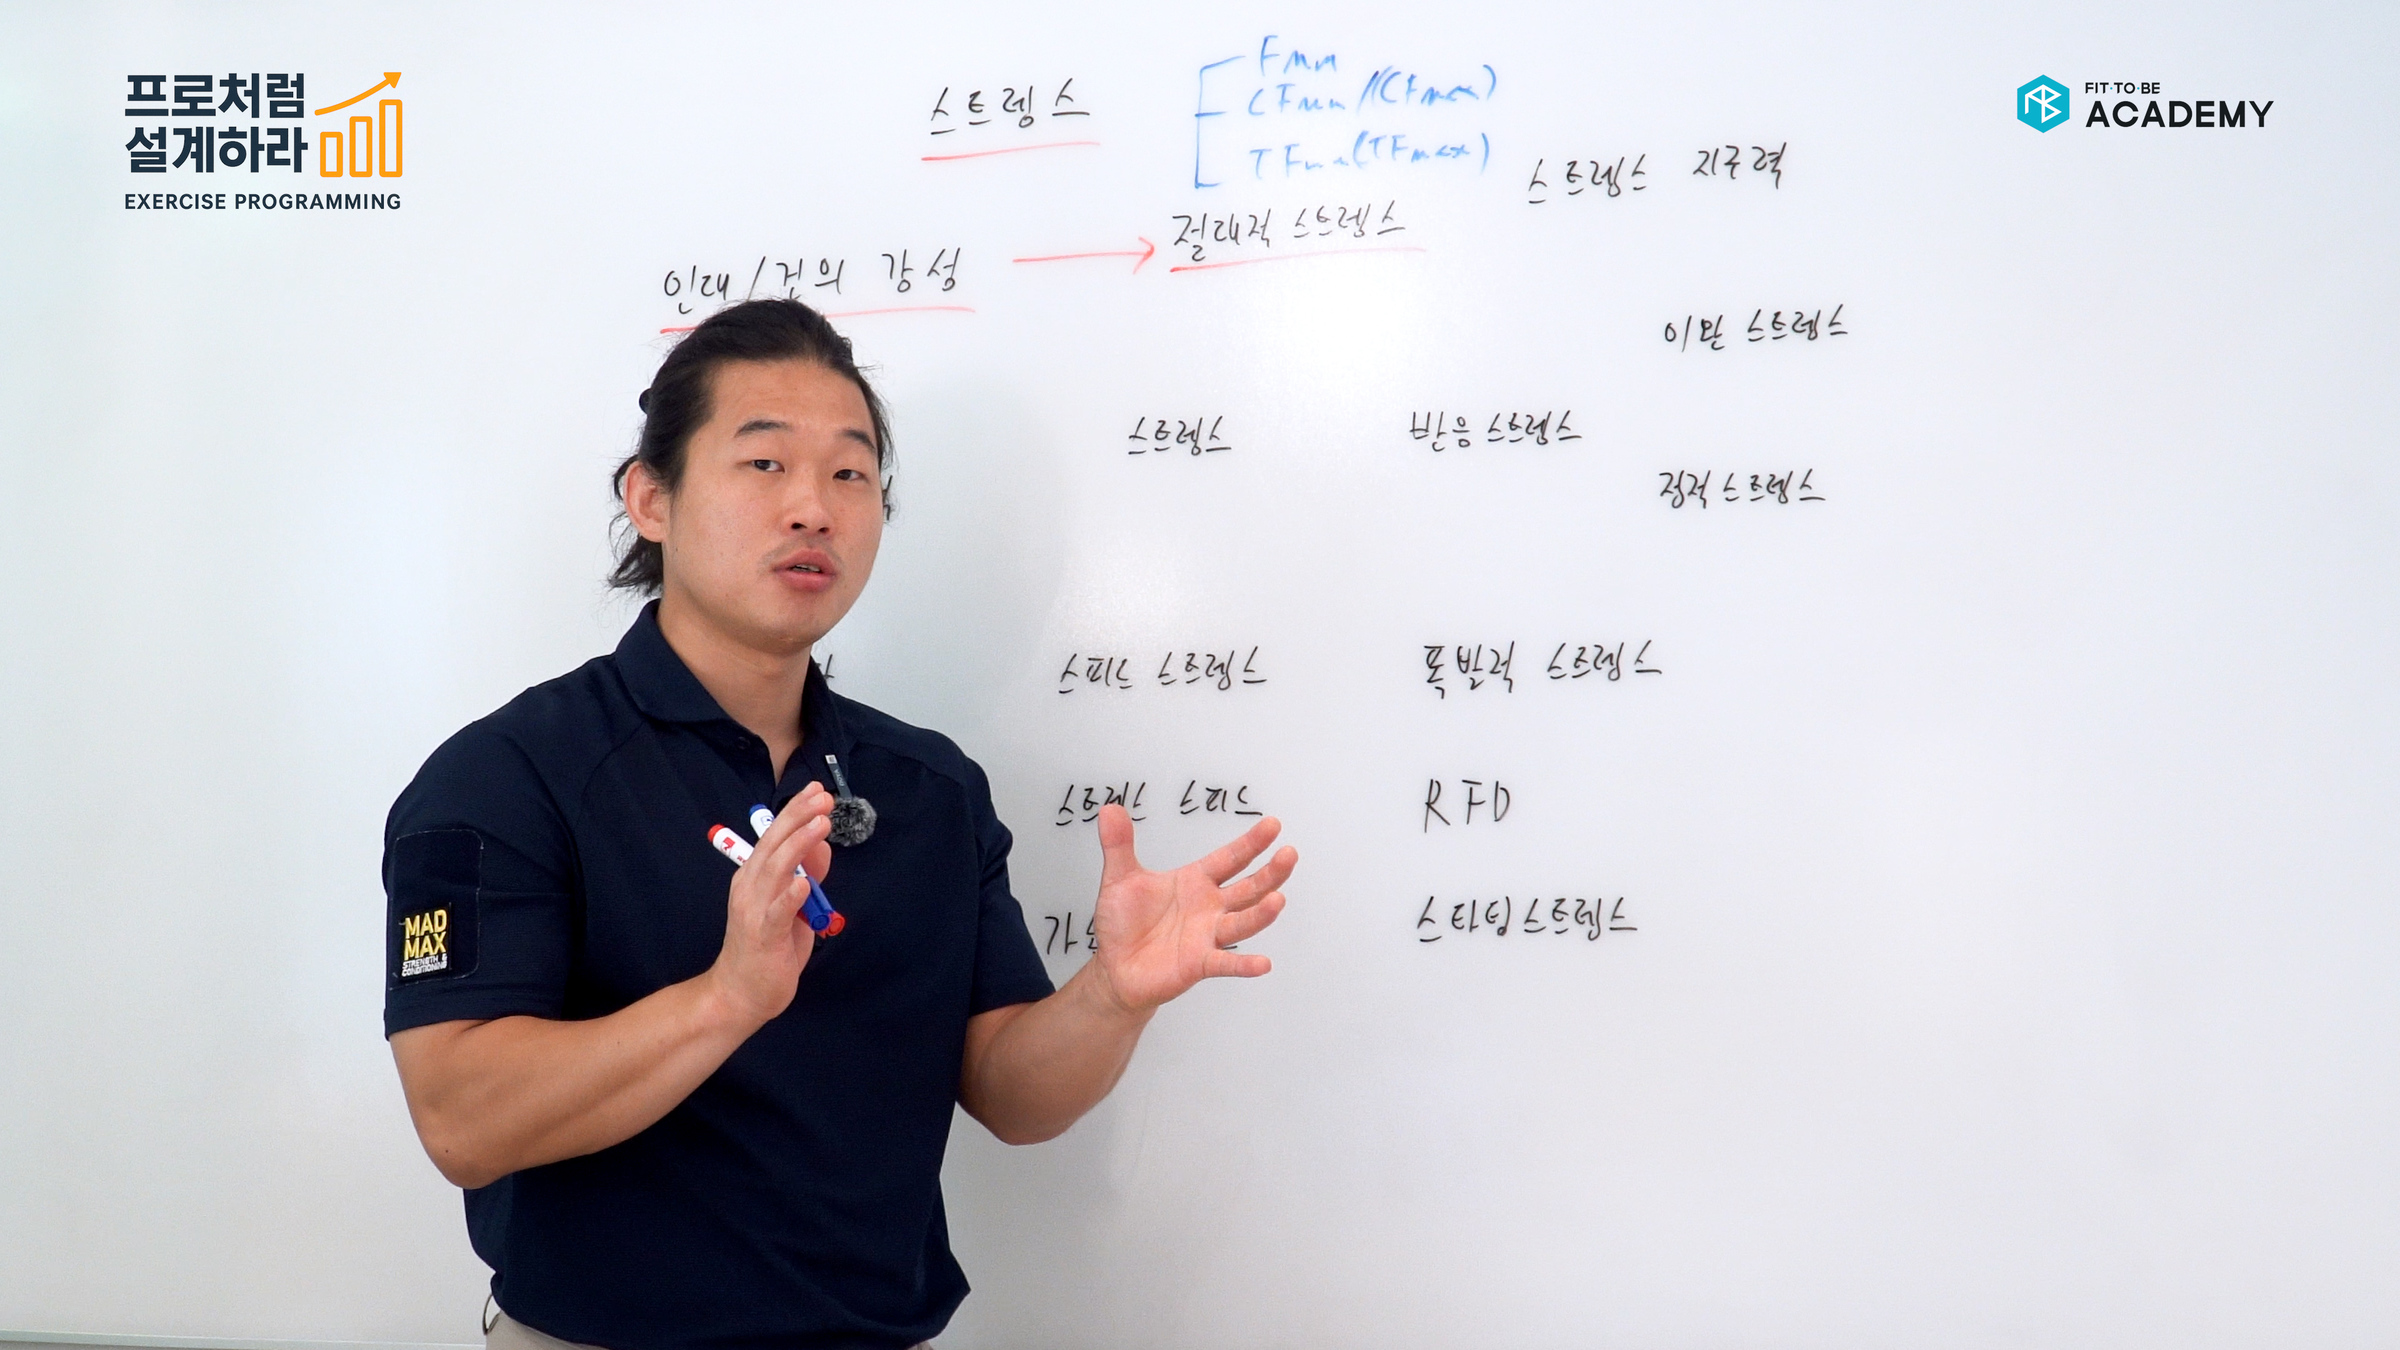 프로처럼
설계하라
EXERCISE PROGRAMMING
FIT·TO·BE
ACADEMY
스트렝스
스트렝스 지구력
절대적 스트렝스
인대/건의 강성
이완 스트렝스
스트렝스
반응 스트렝스
정적 스트렝스
스피드 스트렝스
폭발적 스트렝스
스트렝스 스피드
RFD
스타팅 스트렝스
MAD
MAX
STRENGTH &
CONDITIONING